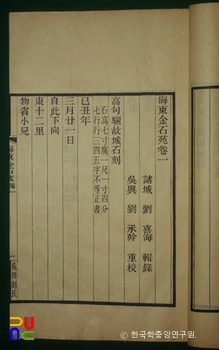 海東金石苑卷一
諸城 劉 喜海 輯錄
吳興 劉 承幹 重校
高句驪故城石刻
石高七寸廣一尺一寸四分
七行行三四五字不等正書
己丑年
三月廿一日
自此下向
東十二里
物省小兄
ⓒ 한국학중앙연구원.